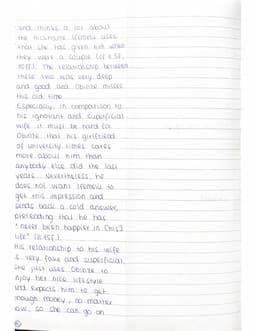 and thinks a lot about
the nickname Ifemelu uses
that she has given him when
they were a couple (cf. l. 5f,
15ff). The relationship between
these two was very deep
and good and Obinze misses
this old time.
Especially, in comparison to
his ignorant and superficial
wife it must be hard for
Obinze that his girlfriend
of university times cares
more about him than
anybody else did the last
years. Nevertheless, he
does not want Ifemelu to
get this impression and
sends back a cold answer,
pretending that he has
"never been happier in [his]
life"
His relationship to his wife
is very fake and superficial.
She just uses Obinze to
enjoy her nice lifestyle
and expects him to get
enough money, no matter
how, so she can go on